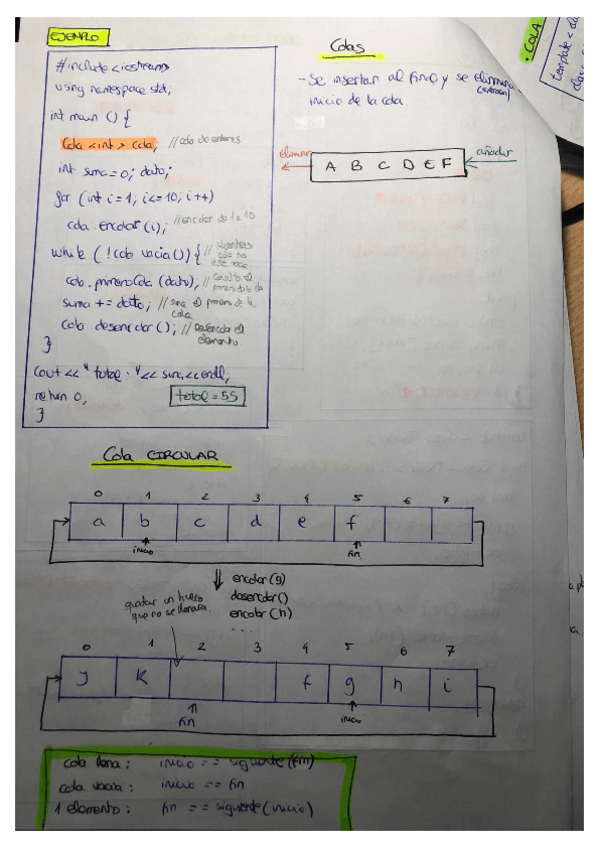 EJEMPLO
#include <iostream>
using namespace std;
int main () {
Cola <int> cola; // cola de enteros
int suma = 0; dato;
for (int i = 1; i <= 10; i++)
cola.encolar (i); // encolar de 1 a 10
while (! cola vacia ()) { // Mientras cola no
cola.primeroCola (dato); // Consulta el primero de la
suma += dato; // suma el primero de la cola
cola desencolar (); // Desencolar el elemento
}
cout << " total : " << suma << endl;
return 0;
total = 55
}
Colas
- Se insertan al final y se eliminan (extraen)
inicio de la cola.
eliminar
A B C D E F
añadir
· COLA
template < cla
clas
Cola CIRCULAR
0 1 2 3 4 5 6 7
a b c d e f
inicio
fin
encolar (g)
desencolar ()
encolar (h)
...
quedar un hueco
que no se llenara
0 1 2 3 4 5 6 7
j k f g h i
fin
inicio
cola llena : inicio == siguiente (fin)
cola vacia : inicio == fin
1 elemento : fin == siguiente (inicio)